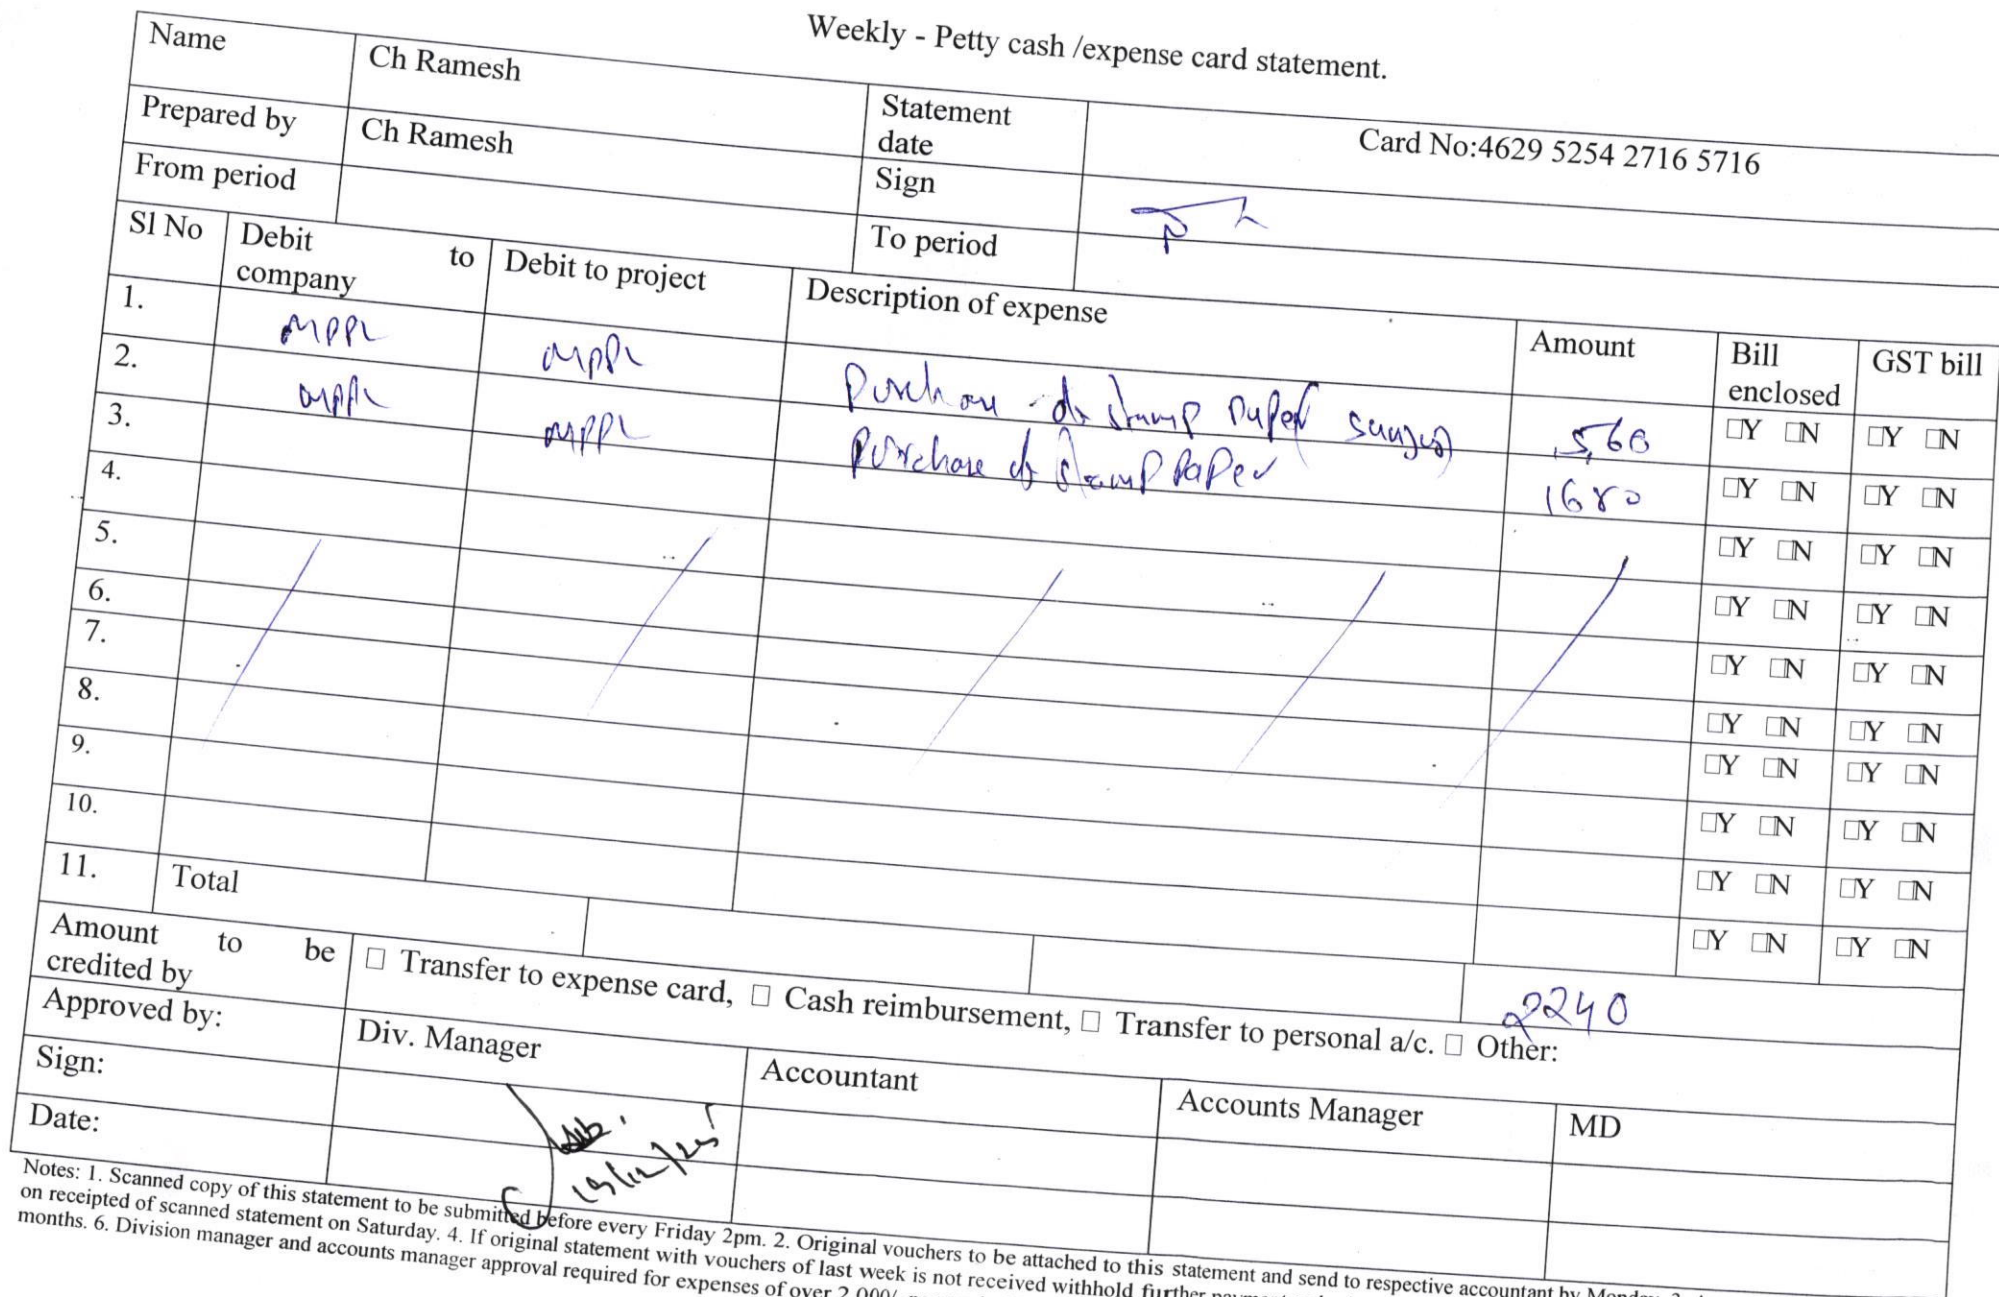 Weekly - Petty cash /expense card statement.
Name Ch Ramesh Statement date Card No:4629 5254 2716 5716
Prepared by Ch Ramesh Sign
From period To period
Sl No Debit to company Debit to project Description of expense Amount Bill enclosed GST bill
1. MPPL MPPL Purchase of stamp paper 560 □Y □N □Y □N
2. MPPL MPPL Purchase of stamp paper 1680 □Y □N □Y □N
3. □Y □N □Y □N
4. □Y □N □Y □N
5. □Y □N □Y □N
6. □Y □N □Y □N
7. □Y □N □Y □N
8. □Y □N □Y □N
9. □Y □N □Y □N
10. □Y □N □Y □N
11. Total 2240
Amount to be credited by □ Transfer to expense card, □ Cash reimbursement, □ Transfer to personal a/c. □ Other:
Approved by: Div. Manager Accountant Accounts Manager MD
Sign:
Date: 19/12/25
Notes: 1. Scanned copy of this statement to be submitted before every Friday 2pm. 2. Original vouchers to be attached to this statement and send to respective accountant by Monday.
on receipted of scanned statement on Saturday. 4. If original statement with vouchers of last week is not received withhold further
months. 6. Division manager and accounts manager approval required for expenses of over 2,000/-